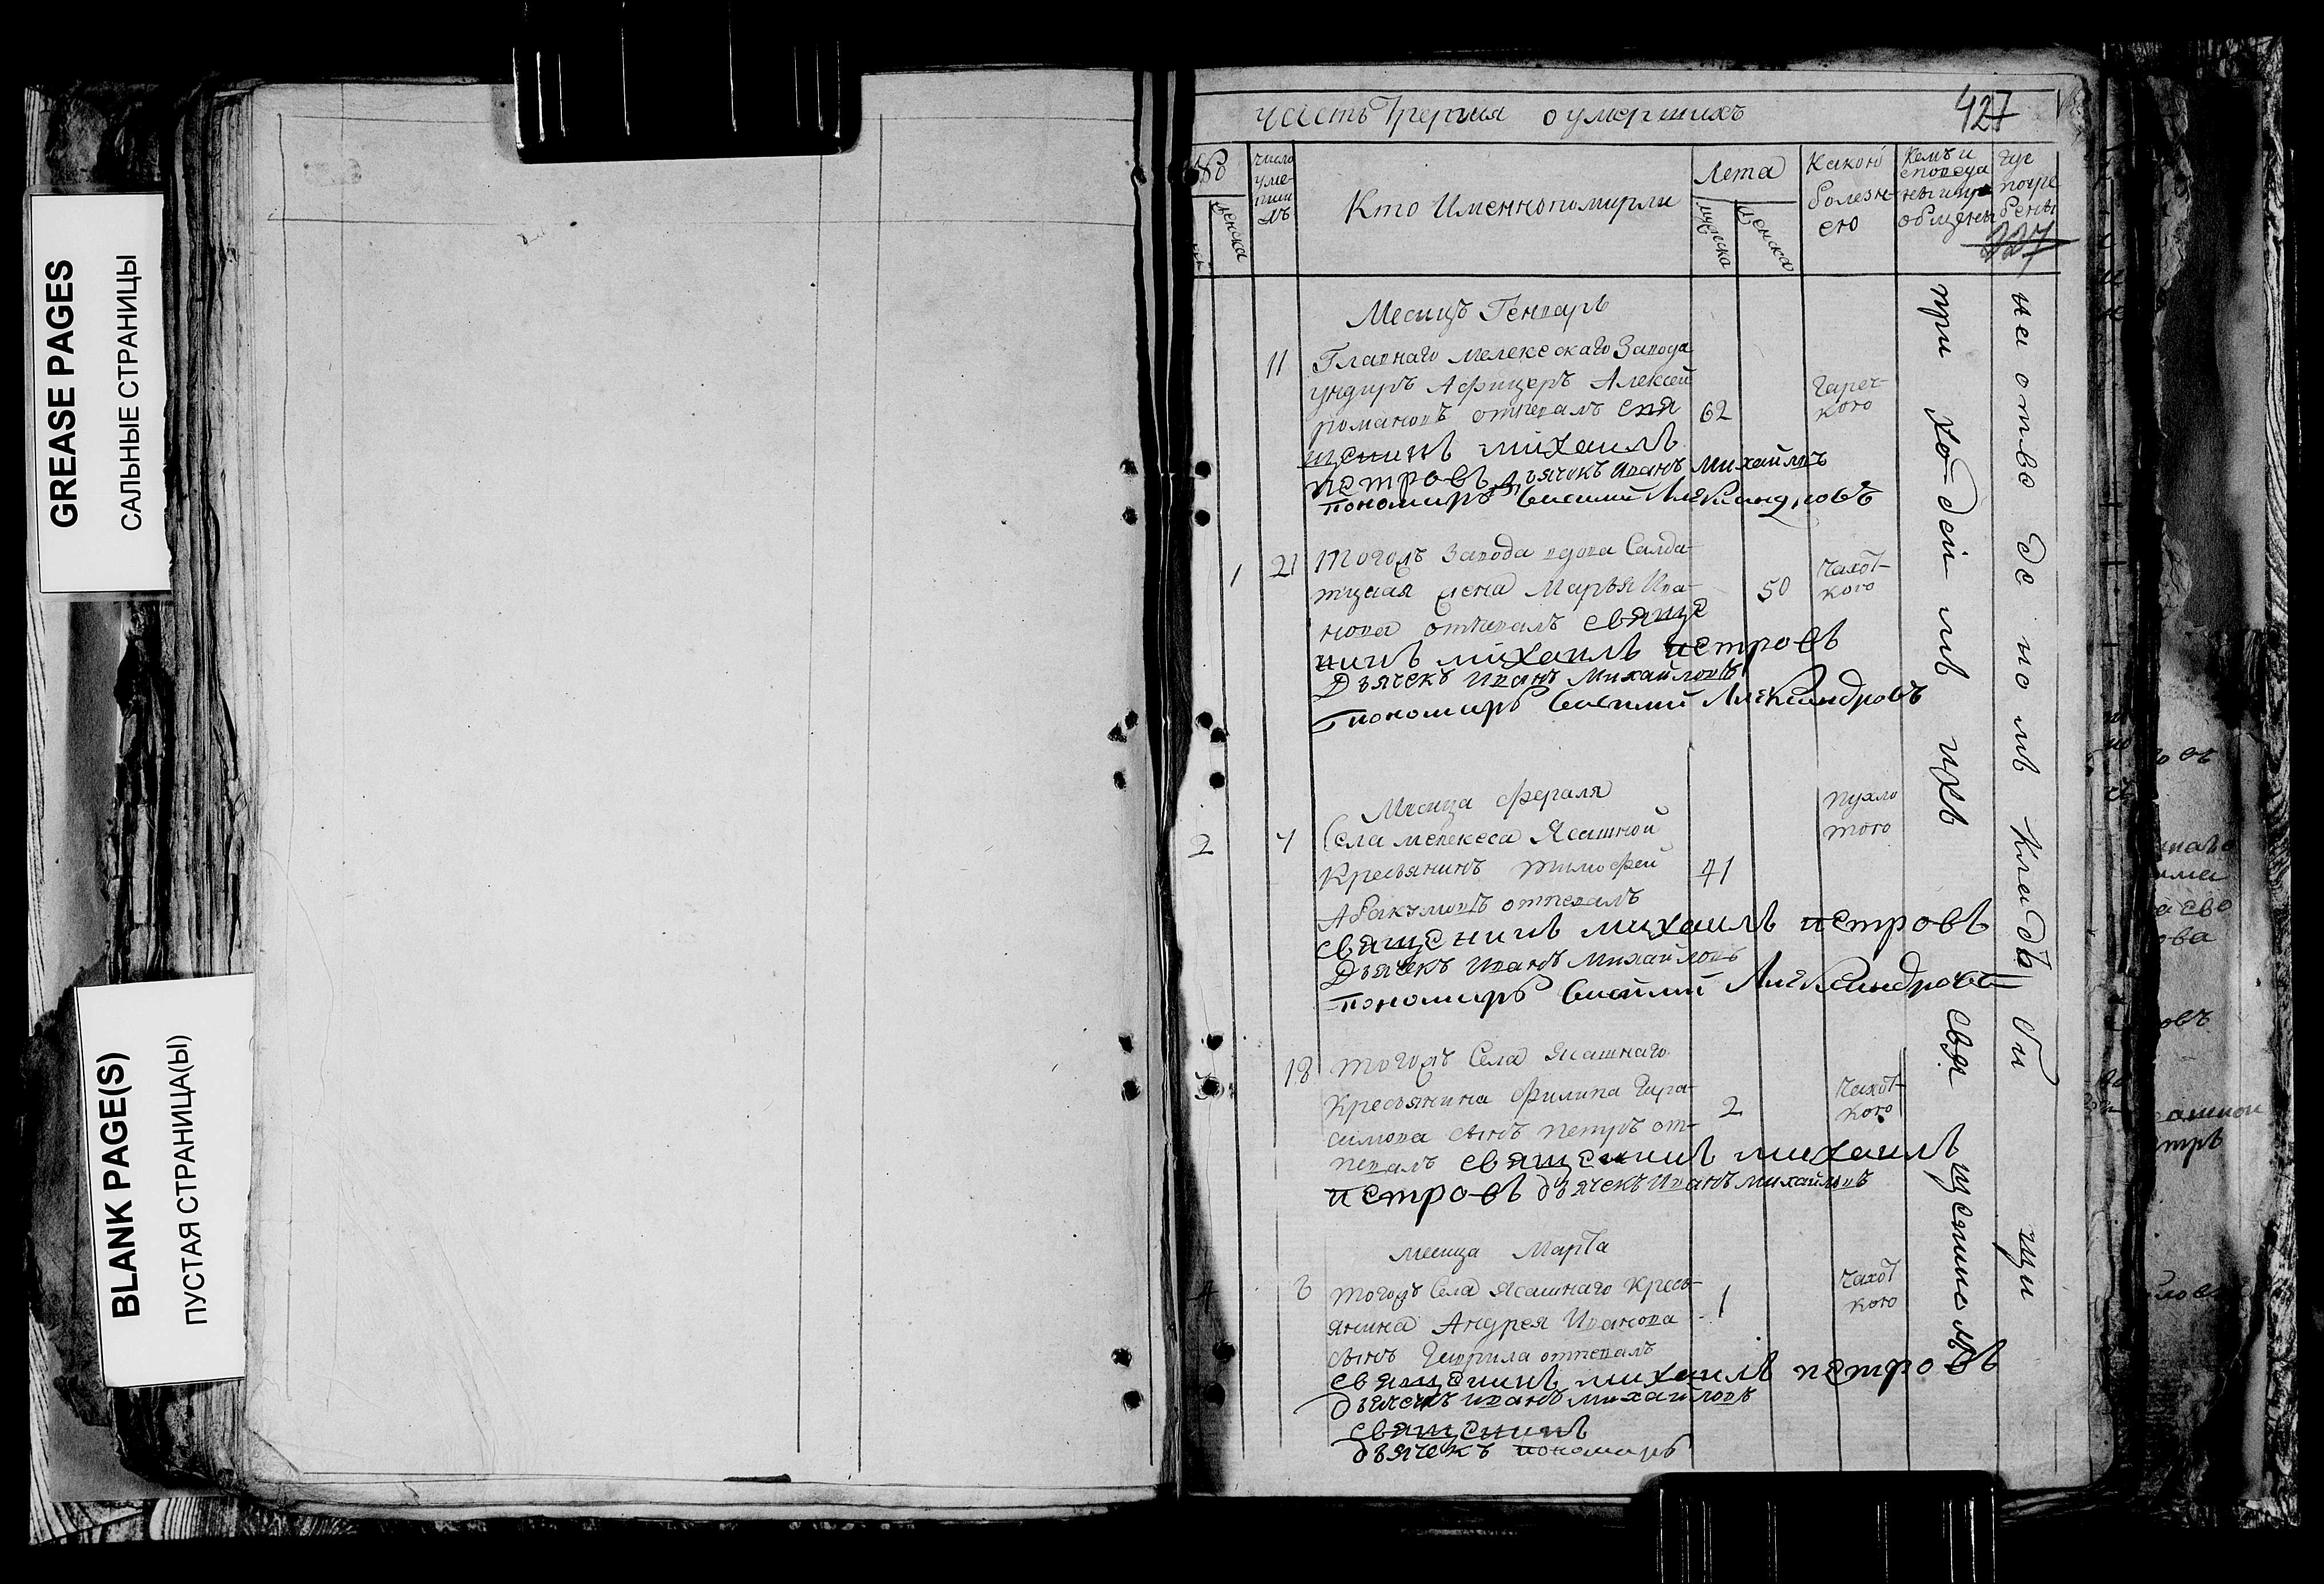 GREASE PAGES
САЛЬНЫЕ СТРАНИЦЫ
BLANK PAGE(S)
ПУСТАЯ СТРАНИЦА(Ы)
часть третия о умершихъ
427
число умершихъ
Кто Именно померли
Лета
Какой болезнею
женска
женска
Месяцъ Генварь
11
Главнаго мелекескаго Завода
ундиръ Афицеръ Алексей
романовъ отпевалъ свя
щенникъ михаилъ
петровъ Дьячекъ Иванъ Михайловъ
пономарь василий Александровъ
62
Гареч-
кого
1
21
Тогожъ Завода вдова Салда-
тцкая жена Марья Ива-
нова отпевалъ свяще
никъ михаилъ петровъ
Дьячекъ Иванъ Михайловъ
пономарь василий Александровъ
50
Чахот-
кого
Месяца фераля
2
4
Села мелекеса Ясашной
Кресьянинъ тимофей
Абакумовъ отпевалъ
священикъ михаилъ петровъ
Дьячекъ Иванъ Михайловъ
пономарь василий Александровъ
71
пухло
того
3
18
тогожъ Села ясашнаго
Кресьянина Филипа Гера-
симова сынъ петръ от-
певалъ священикъ михаилъ
петровъ дьячекъ Иванъ михайловъ
2
Чахот-
кого
месяца Марта
4
тогожъ Села ясашнаго кресь-
янина Андрея Иванова
сынъ Гаврила отпевалъ
священикъ михаилъ петровъ
дьячекъ иванъ михайловъ
священикъ
дьячекъ пономарь
1
Чахот
кого
при
ихъ
священикомъ